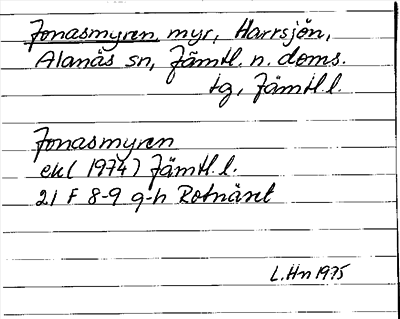 Jonasmyren myr, Harrsjön,
Alanäs sn, Jämtl. n. doms.
tg, Jämtl.l.
Jonasmyren
ek (1974) Jämtl.l.
21 F 8-9 g-h Rotnäset
L.Hn 1975